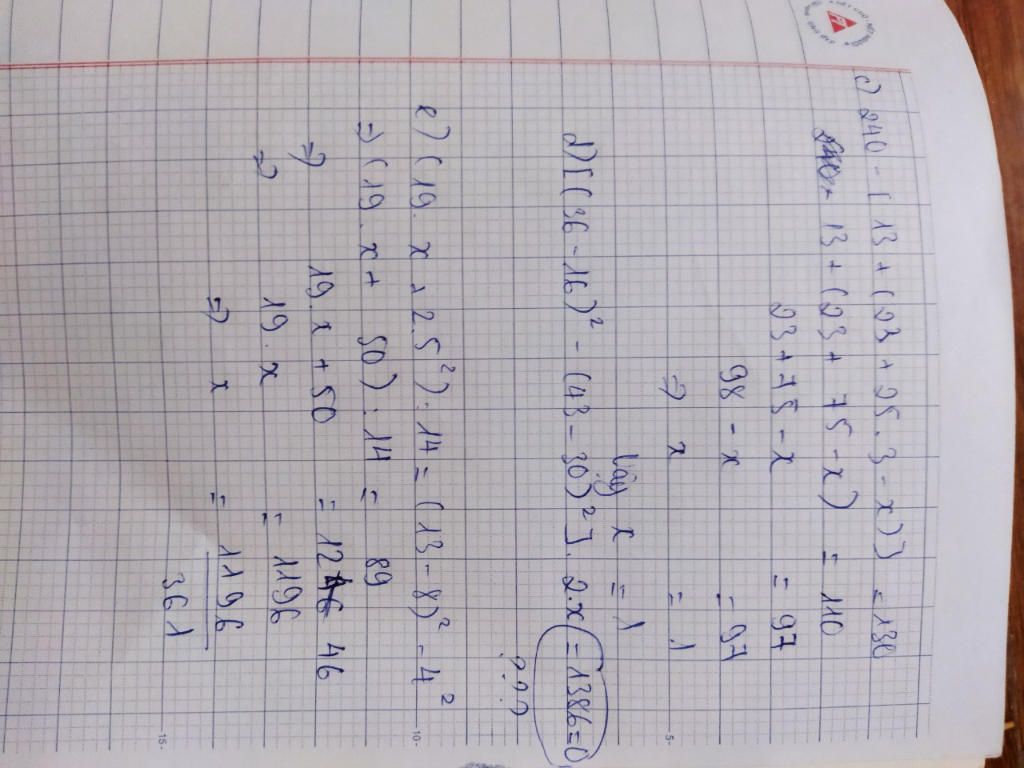 c) 240 - [13 + (23 + 25.3 - x)] = 130
13 + (23 + 75 - x) = 110
23 + 75 - x = 97
98 - x = 97
=> x = 1
Vậy x = 1
d) [(36 - 16)² - (43 - 30)²]. 2.x = 1386 = 0
???
e) (19. x + 2.5²) : 14 = (13 - 8)² - 4²
=> (19. x + 50) : 14 = 89
=> 19. x + 50 = 1246
=> 19. x = 1196
=> x = 1196
361
5
10
15